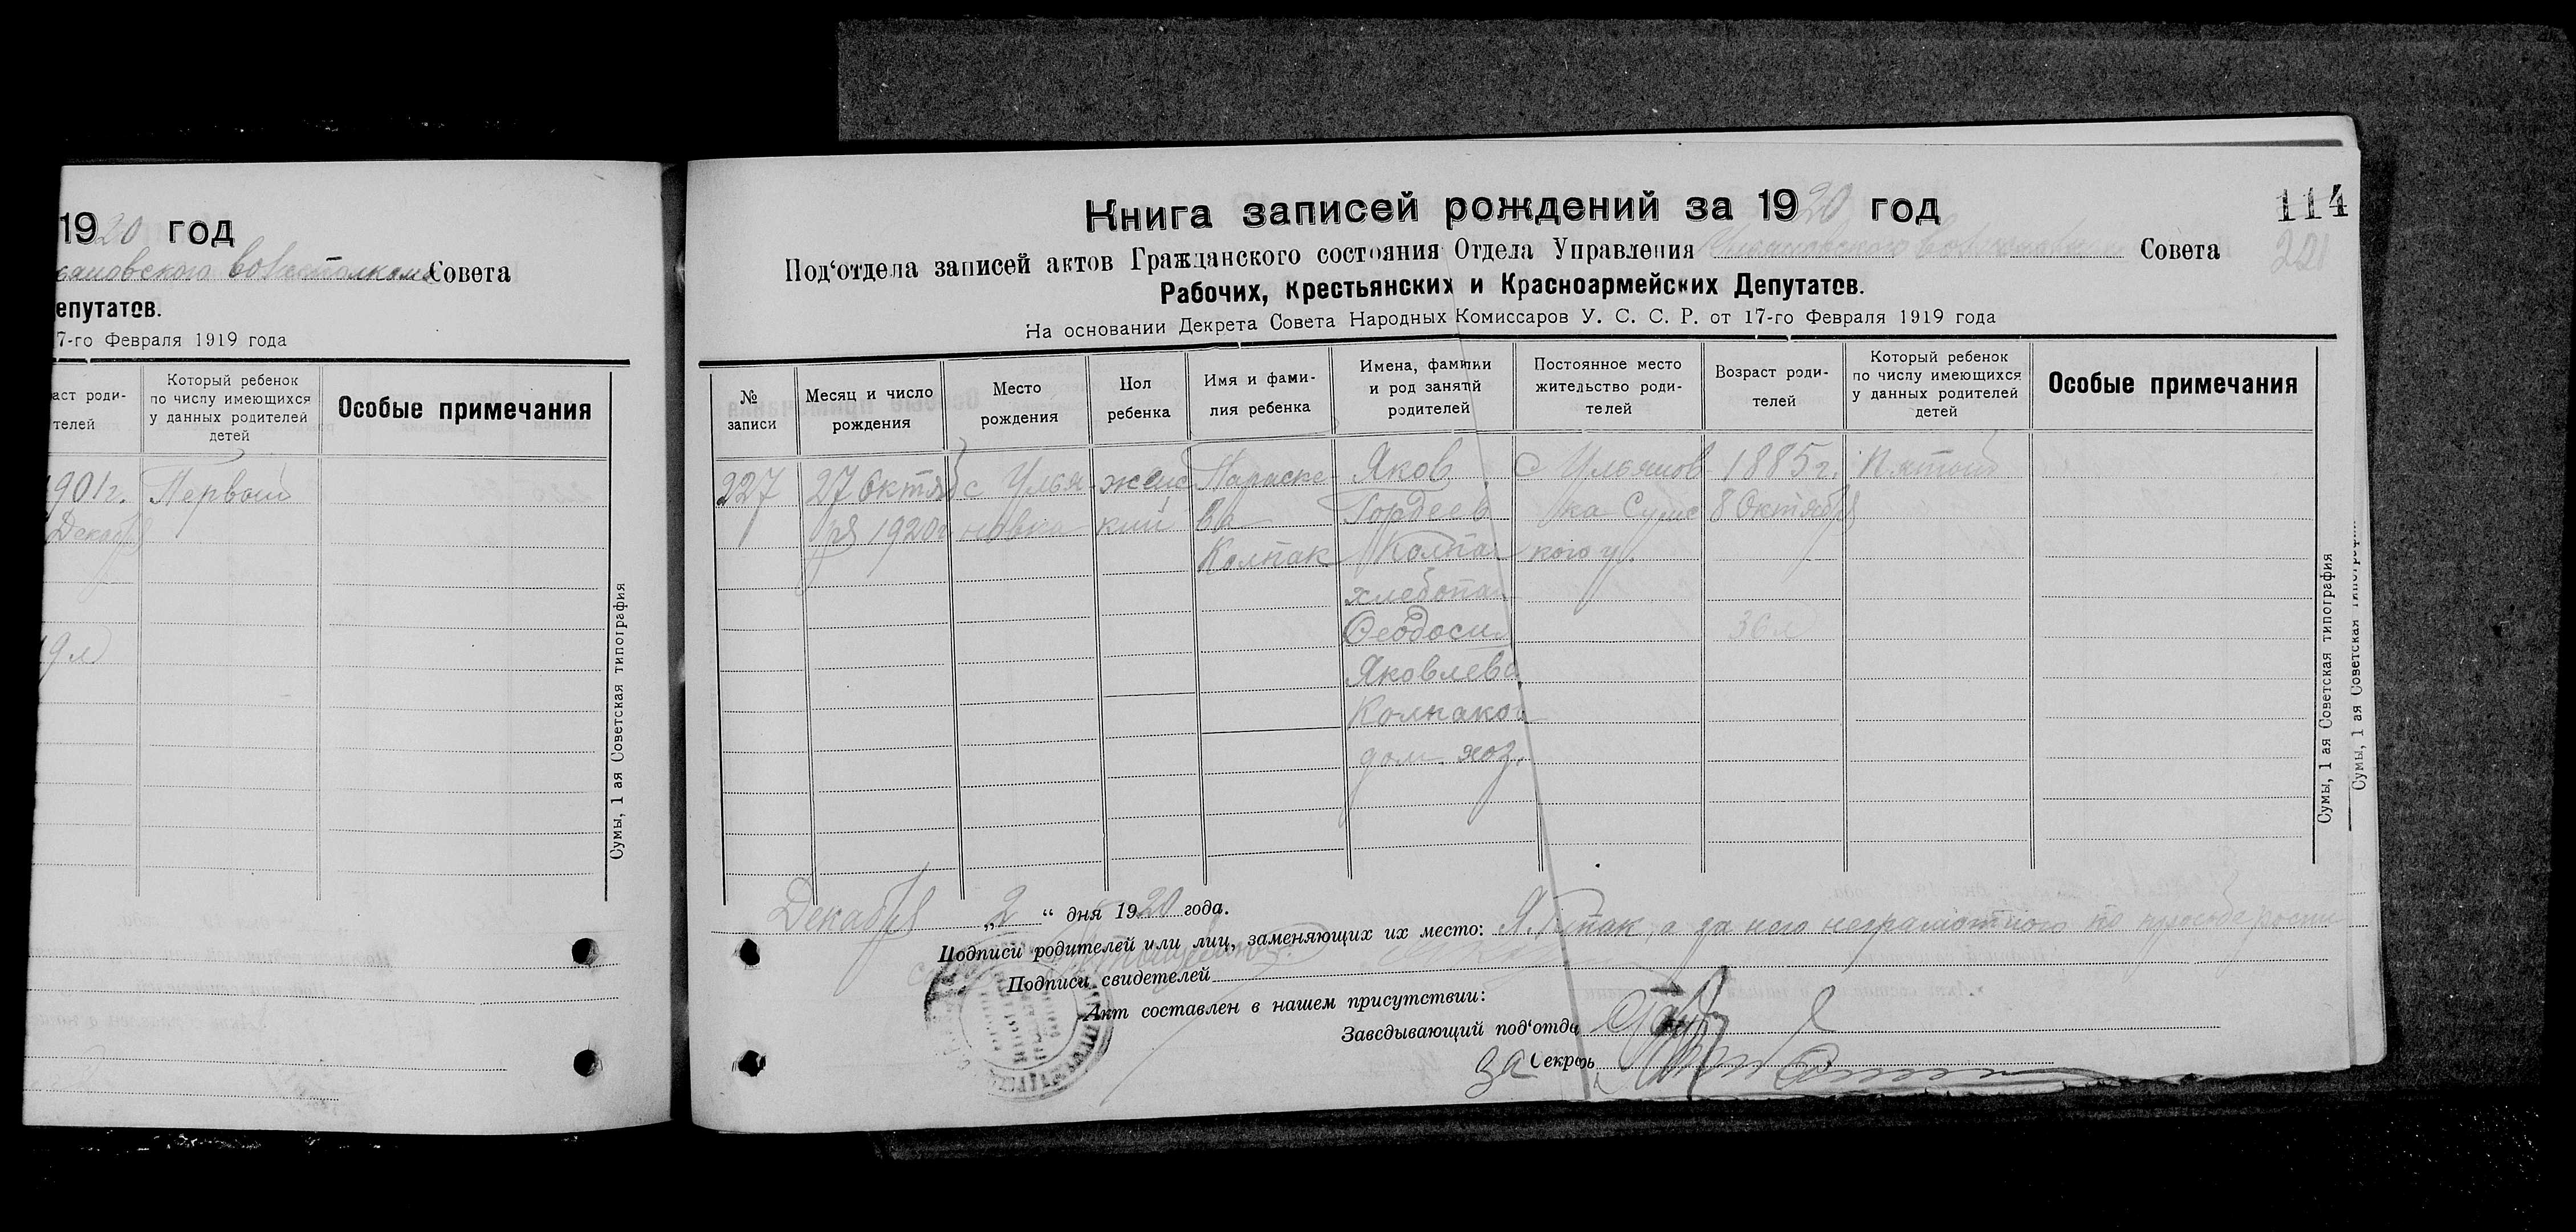 1920 год
Совета
епутатов.
7-го Февраля 1919 года
аст роди-
телей
Который ребенок
по числу имеющихся
у данных родителей
детей
Особые примечания
901 г.
Первый
Декабря
9 л
Сумы, 1 ая Советская типография
Книга записей рождений за 1920 год
114
221
Под‘отдела записей актов Гражданского состояния Отдела Управления Совета
Рабочих, Крестьянских и Красноармейских Депутатов.
На основании Декрета Совета Народных Комиссаров У. С. С. Р. от 17-го Февраля 1919 года
№
записи
Месяц и число
рождения
Место
рождения
Пол
ребенка
Имя и фами-
лия ребенка
Имена, фамилии
и род занятий
родителей
Постоянное место
жительство роди-
телей
Возраст роди-
телей
Который ребенок
по числу имеющихся
у данных родителей
детей
Особые примечания
227
27 Октяб
ря 1920 г
с Улья
новка
женс
кий
Параске
ва
Колпак
Яков
Гордеев
Колпак
хлебопа
Феодосия
Яковлева
Колпакова
дом. хоз.
с Ульянов
ка Сумс
кого у.
1885 г.
8 Октября
36 л
Пятый
Декабря „2“ дня 1920 года.
Подписи родителей или лиц, заменяющих их место: Я. Колпак, а за него неграмотного по просьбе
Подписи свидетелей
Акт составлен в нашем присутствии:
Заведывающий под‘отд
За Секр
Сумы, 1 ая Советская типография
Сумы, 1 ая Советская типография